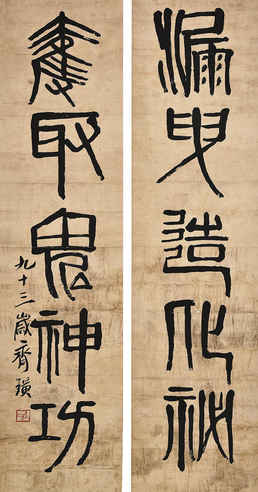 漏曳造化祕
奪取鬼神功
九十三歲齊璜